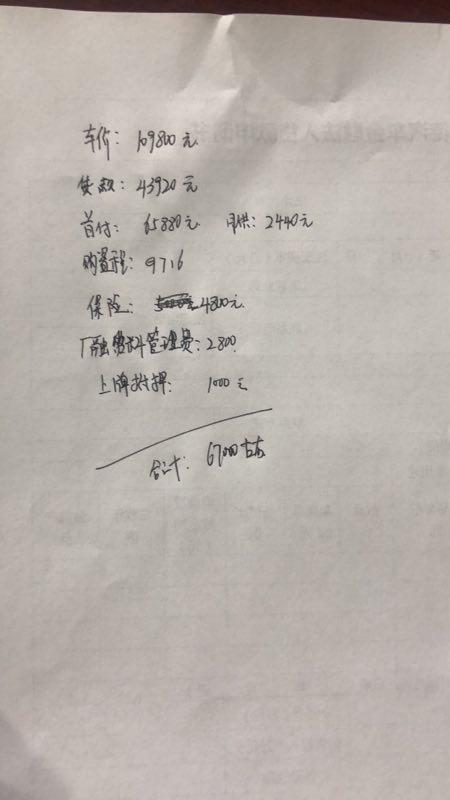 车价: 109800元
贷款: 43920元
首付: 65880元 月供: 2440元
购置税: 9716
保险: 4800元
厂融资料管理费: 2800
上牌抵押: 1000元
合计: 67000左右